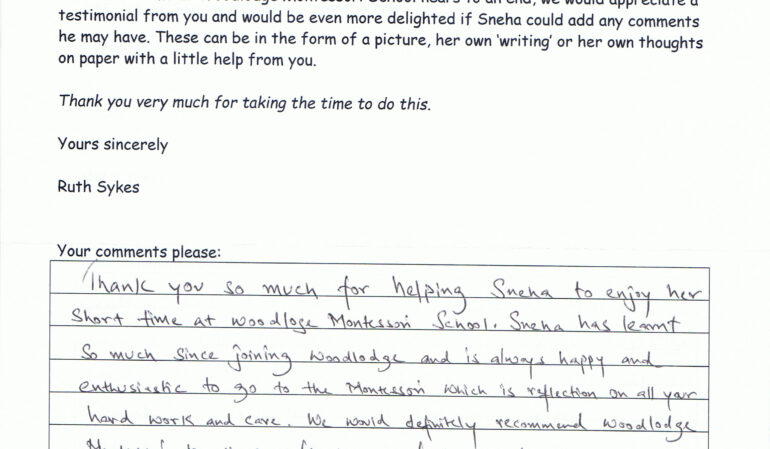 testimonial from you and would be even more delighted if Sneha could add any comments
he may have. These can be in the form of a picture, her own 'writing' or her own thoughts
on paper with a little help from you.
Thank you very much for taking the time to do this.
Yours sincerely
Ruth Sykes
Your comments please:
Thank you so much for helping Sneha to enjoy her
Short time at Woodloge Montessori School. Sneha has learnt
So much Since joining Woodlodge and is always happy and
enthusiastic to go to the Montessori which is reflection on all your
hard work and care. We would definitely recommend Woodlodge